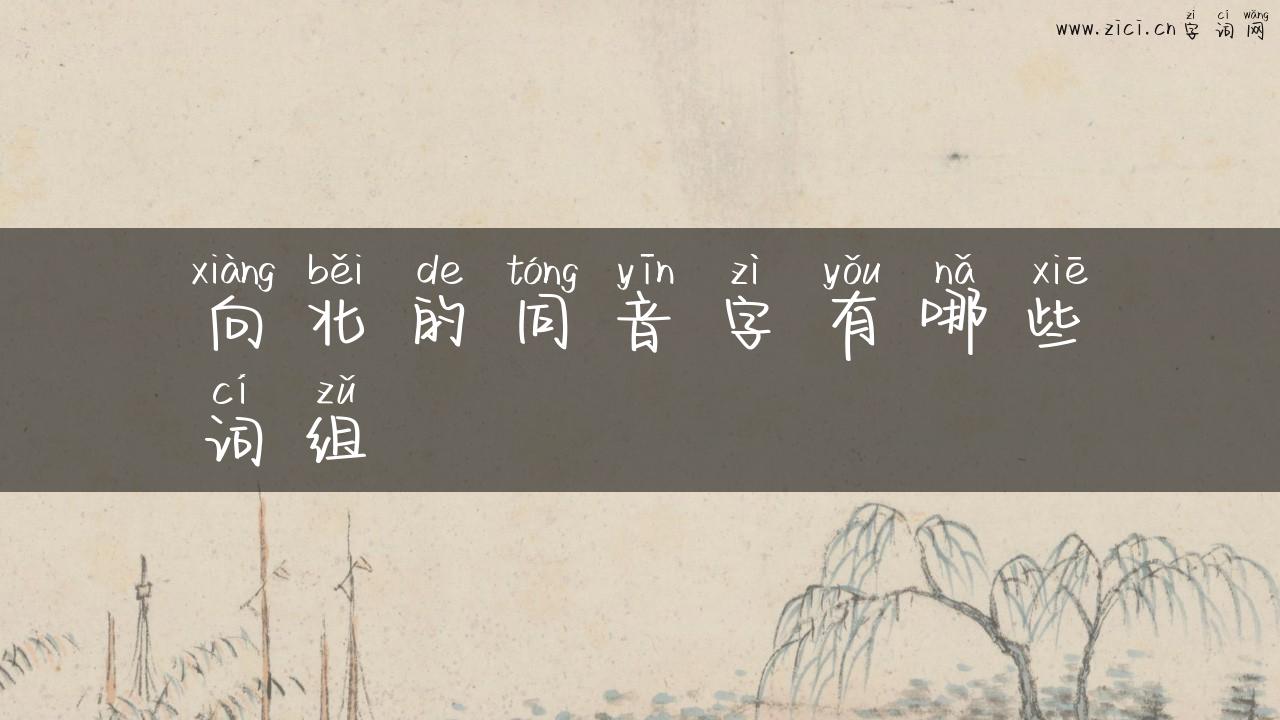 zì cí wǎng
www.zici.cn 字词网
xiàng běi de tóng yīn zì yǒu nǎ xiē
向北的同音字有哪些
cí zǔ
词组